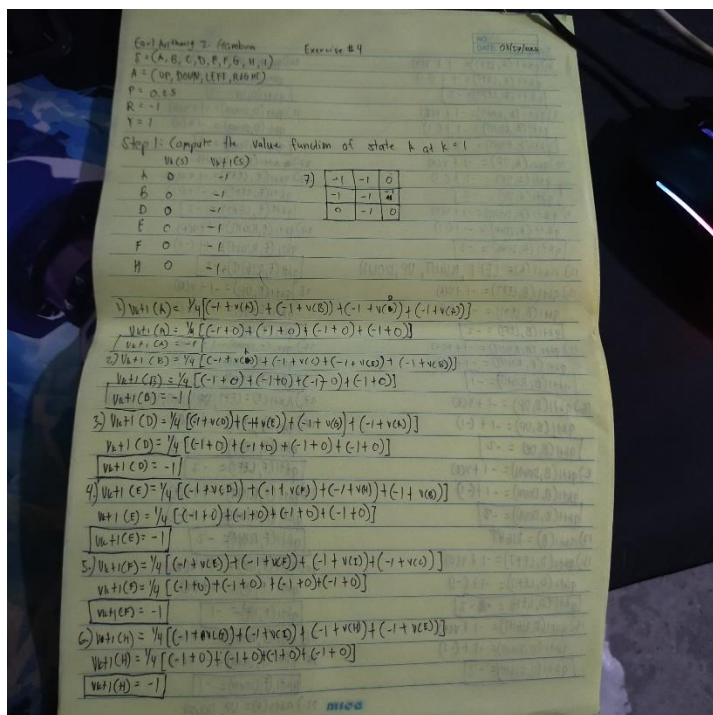 Earl Anthony I.
Exercise #4
NO.
DATE
S = (A, B, C, D, E, F, G, H, I)
A = (UP, DOWN, LEFT, RIGHT)
P = 0.25
R = -1
γ = 1
Step 1: Compute the value function of state A at k = 1
Vk(s) Vk+1(s)
A 0 -1
B 0 -1
D 0 -1
E 0 -1
F 0 -1
H 0 -1
7)
-1 -1 0
-1 -1 -1
0 -1 0
1.) Vk+1 (A) = 1/4 [(-1 + V(A)) + (-1 + V(B)) + (-1 + V(D)) + (-1 + V(A))]
Vk+1 (A) = 1/4 [(-1+0) + (-1+0) + (-1+0) + (-1+0)]
Vk+1 (A) = -1
2.) Vk+1 (B) = 1/4 [(-1 + V(A)) + (-1 + V(C)) + (-1 + V(E)) + (-1 + V(B))]
Vk+1 (B) = 1/4 [(-1+0) + (-1+0) + (-1+0) + (-1+0)]
Vk+1 (B) = -1
3.) Vk+1 (D) = 1/4 [(-1 + V(D)) + (-1 + V(E)) + (-1 + V(G)) + (-1 + V(A))]
Vk+1 (D) = 1/4 [(-1+0) + (-1+0) + (-1+0) + (-1+0)]
Vk+1 (D) = -1
4.) Vk+1 (E) = 1/4 [(-1 + V(D)) + (-1 + V(F)) + (-1 + V(H)) + (-1 + V(B))]
Vk+1 (E) = 1/4 [(-1+0) + (-1+0) + (-1+0) + (-1+0)]
Vk+1 (E) = -1
5.) Vk+1 (F) = 1/4 [(-1 + V(E)) + (-1 + V(F)) + (-1 + V(I)) + (-1 + V(C))]
Vk+1 (F) = 1/4 [(-1+0) + (-1+0) + (-1+0) + (-1+0)]
Vk+1 (F) = -1
6.) Vk+1 (H) = 1/4 [(-1 + V(G)) + (-1 + V(I)) + (-1 + V(H)) + (-1 + V(E))]
Vk+1 (H) = 1/4 [(-1+0) + (-1+0) + (-1+0) + (-1+0)]
Vk+1 (H) = -1